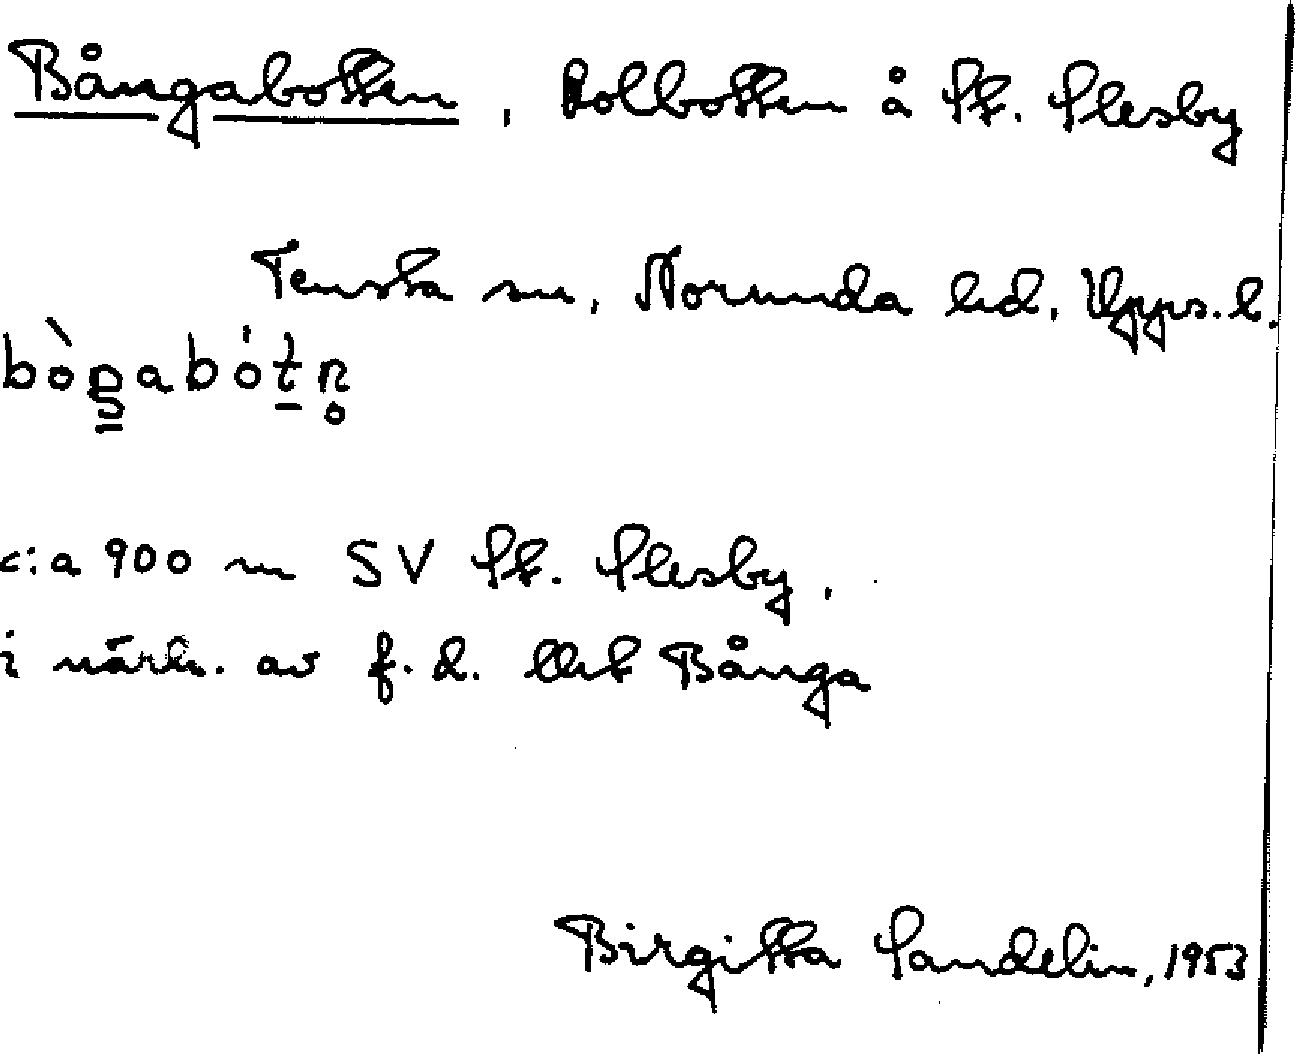 Bångabotten, kolbotten å St. Plesby
Tensta sn, Norunda hd, Upps. l.
c:a 900 m SV St. Plesby,
i närh. av f.d. Bånga
Birgitta Sandelin, 1953